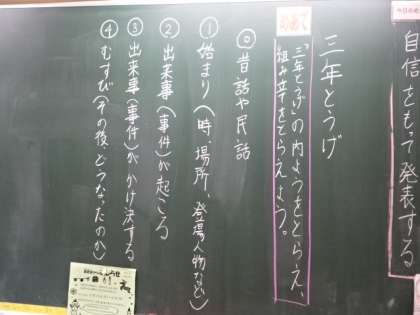 自信をもて発表する
三年とうげ
めあて
「三年とうげ」の内ようをとらえ、
組み立てをとらえよう。
◎昔話や民話
①始まり(時、場所、登場人物など)
②出来事(事件)が起こる
③出来事(事件)がかけ決する
④むすび(その後どうなったのか)